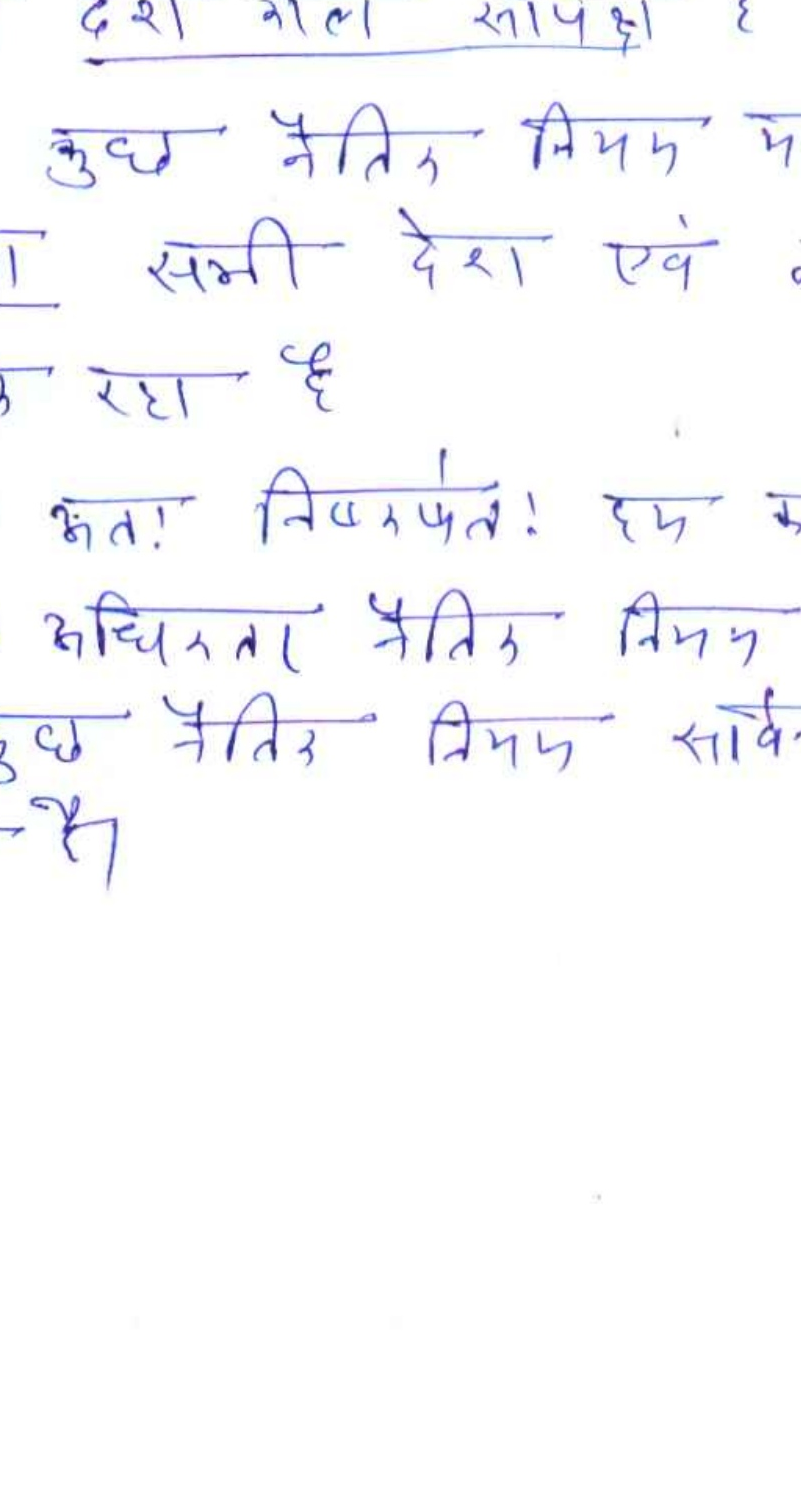 देश काल सापेक्ष है
कुछ नैतिक नियम
सभी देश एवं
रहा है
अतः निष्कर्षतः हम
अधिकतर नैतिक नियम
कुछ नैतिक नियम सार्व
है।